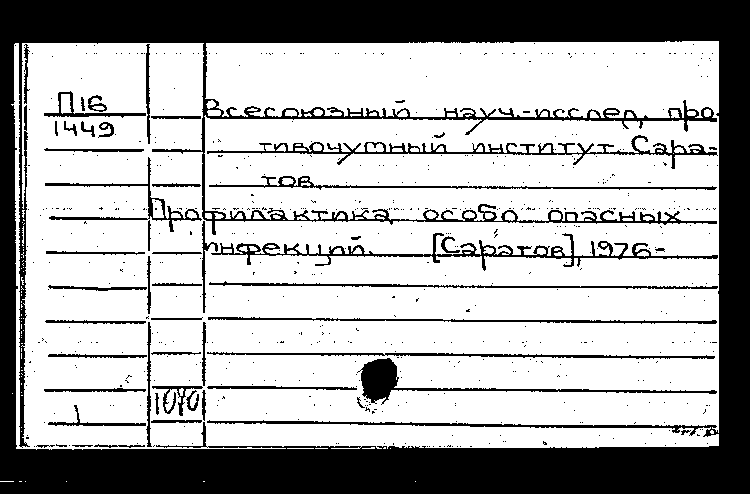 П16
1449
Всесоюзный науч.-исслед. про-
тивочумный институт. Сара-
тов.
Профилактика особо опасных
инфекций. [Саратов], 1976-
1